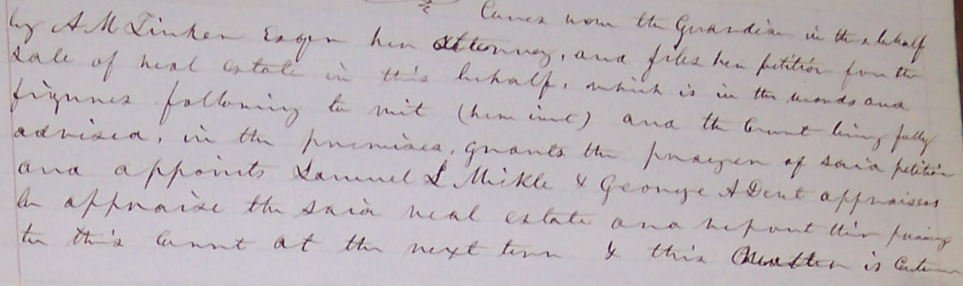 Comes now the Guardian in this behalf
by A M Tinken Esqer her attorney, and files her petition for the
Sale of real estate in this behalf, which is in the words and
figures following to wit (here inst) and the Court being fully
advised, in the premises, grants the prayer of said petition
and appoints Samuel L Mikle & George A Dent appraisers
to appraise the said real estate and report their
to this Court at the next term & this Matter is